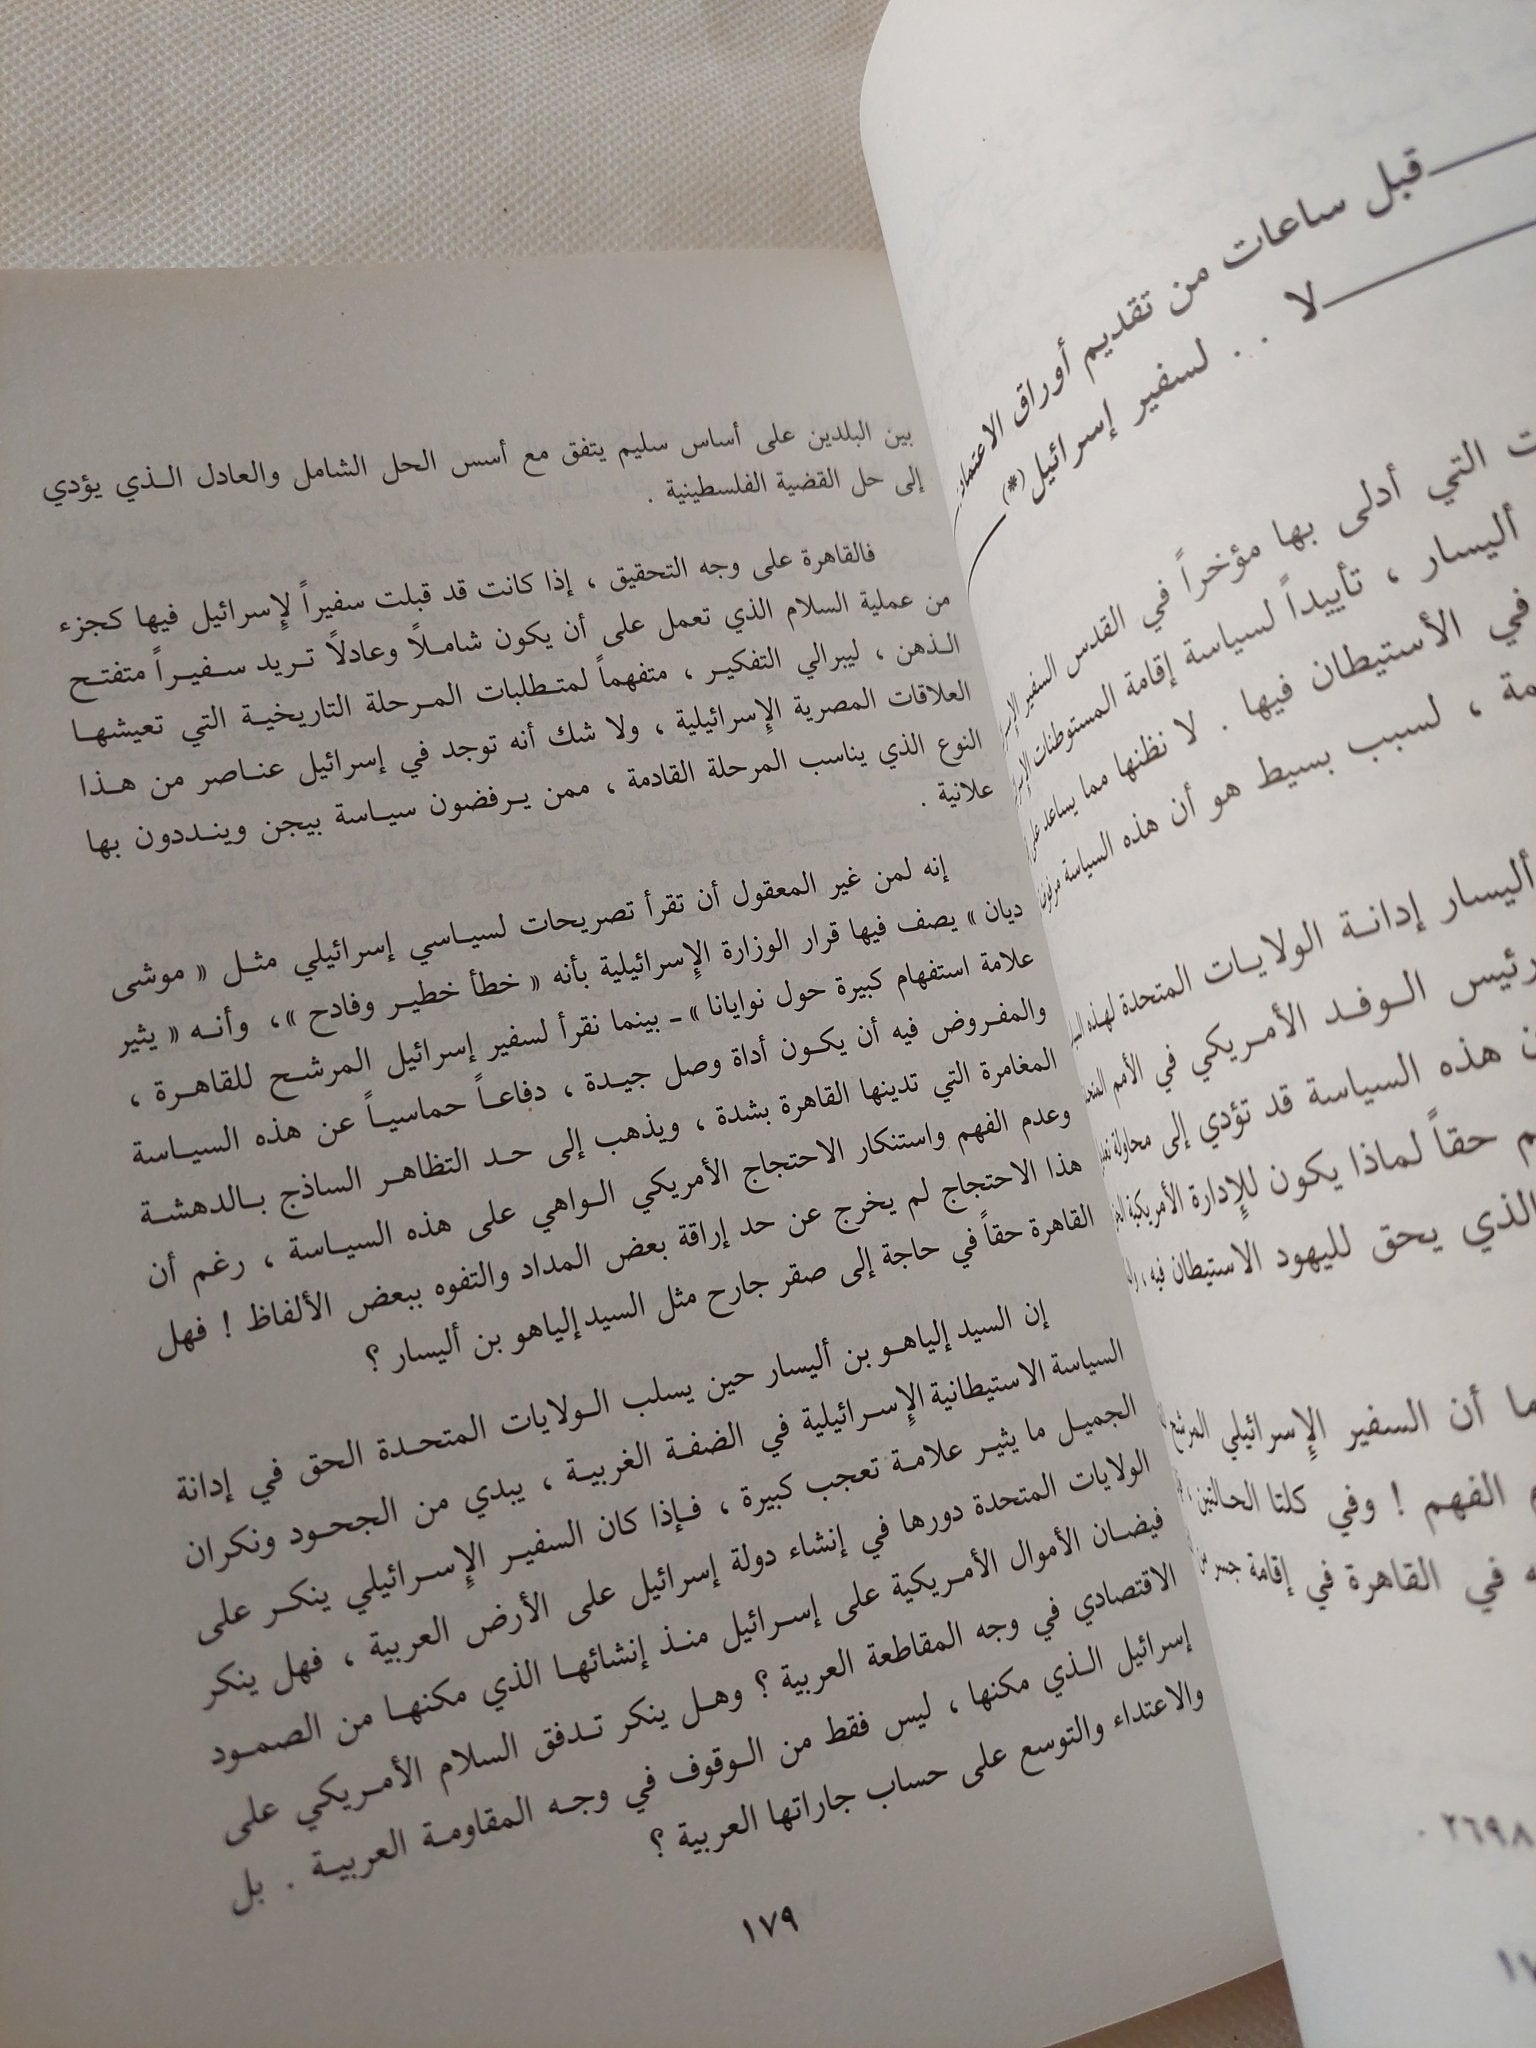 قبل ساعات من تقديم أوراق
لا . . لسفير إسرائيل (*)
التي أدلى بها مؤخراً في القدس السفير
أليسار ، تأييداً لسياسة إقامة المستوطنات
في الأستيطان فيها . لا نظنها مما يساعد
، لسبب بسيط هو أن هذه السياسة
أليسار إدانة الولايات المتحدة لهذه
رئيس الوفد الأمريكي في الأمم
هذه السياسة قد تؤدي إلى محاولة
حقاً لماذا يكون للإدارة الأمريكية
الذي يحق لليهود الاستيطان فيه ،
أن السفير الإسرائيلي المرشح
الفهم ! وفي كلتا الحالتين ،
في القاهرة في إقامة جسر
٢٦٩٨ .
بين البلدين على أساس سليم يتفق مع أسس الحل الشامل والعادل الذي يؤدي
إلى حل القضية الفلسطينية .
فالقاهرة على وجه التحقيق ، إذا كانت قد قبلت سفيراً لإسرائيل فيها كجزء
من عملية السلام الذي تعمل على أن يكون شاملاً وعادلاً تريد سفيراً متفتح
الذهن ، ليبرالي التفكير ، متفهماً لمتطلبات المرحلة التاريخية التي تعيشها
العلاقات المصرية الإسرائيلية ، ولا شك أنه توجد في إسرائيل عناصر من هذا
النوع الذي يناسب المرحلة القادمة ، ممن يرفضون سياسة بيجن وينددون بها
علانية .
إنه لمن غير المعقول أن تقرأ تصريحات لسياسي إسرائيلي مثل « موشى
ديان » يصف فيها قرار الوزارة الإسرائيلية بأنه « خطأ خطير وفادح »، وأنه « يثير
علامة استفهام كبيرة حول نوايانا » ـ بينما نقرأ لسفير إسرائيل المرشح للقاهرة ،
والمفروض فيه أن يكون أداة وصل جيدة ، دفاعاً حماسياً عن هذه السياسة
المغامرة التي تدينها القاهرة بشدة ، ويذهب إلى حد التظاهر الساذج بالدهشة
وعدم الفهم واستنكار الاحتجاج الأمريكي الواهي على هذه السياسة ، رغم أن
هذا الاحتجاج لم يخرج عن حد إراقة بعض المداد والتفوه ببعض الألفاظ ! فهل
القاهرة حقاً في حاجة إلى صقر جارح مثل السيد إلياهو بن أليسار ؟
إن السيد إلياهو بن أليسار حين يسلب الولايات المتحدة الحق في إدانة
السياسة الاستيطانية الإسرائيلية في الضفة الغربية ، يبدي من الجحود ونكران
الجميل ما يثير علامة تعجب كبيرة ، فإذا كان السفير الإسرائيلي ينكر على
الولايات المتحدة دورها في إنشاء دولة إسرائيل على الأرض العربية ، فهل ينكر
فيضان الأموال الأمريكية على إسرائيل منذ إنشائها الذي مكنها من الصمود
الاقتصادي في وجه المقاطعة العربية ؟ وهل ينكر تدفق السلام الأمريكي على
إسرائيل الذي مكنها ، ليس فقط من الوقوف في وجه المقاومة العربية . بل
والاعتداء والتوسع على حساب جاراتها العربية ؟
١٧٩